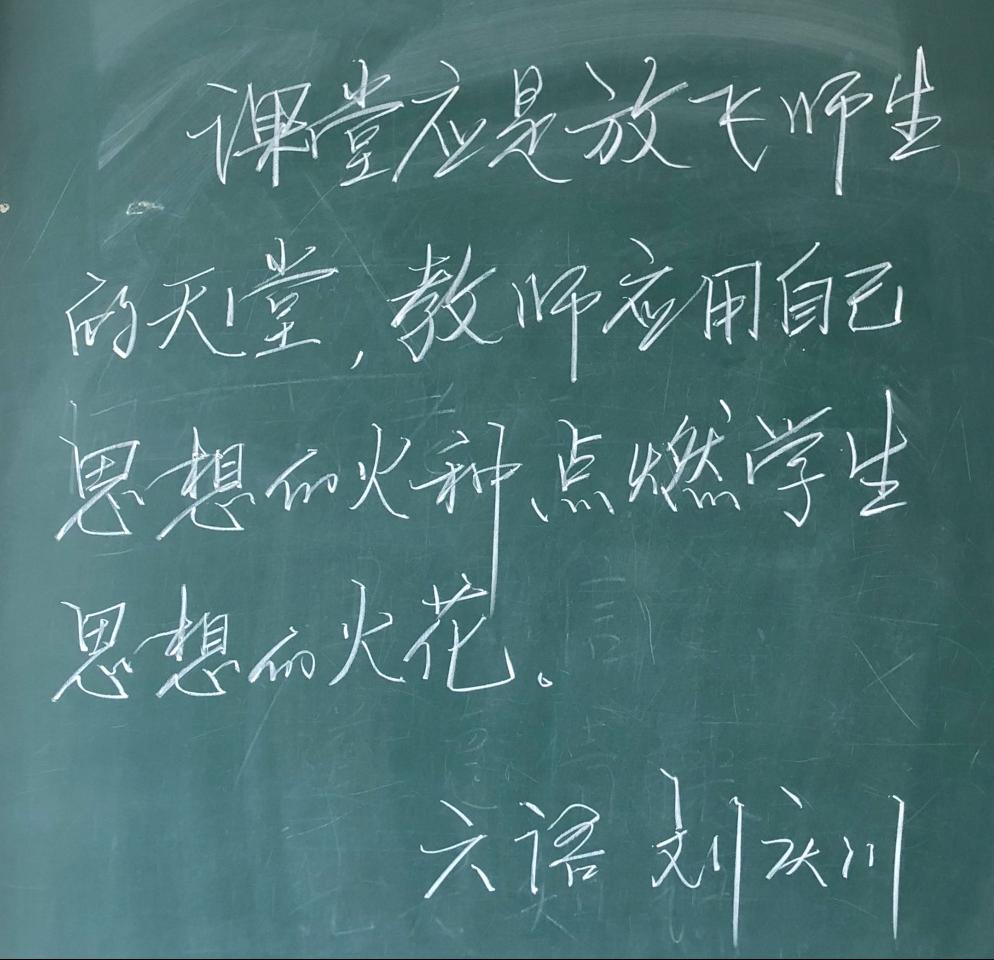 课堂应是放飞师生
的天堂，教师应用自己
思想的火种、点燃学生
思想的火花。
六语 刘庆川